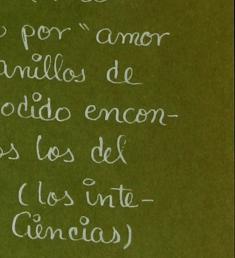 por "amor
anillos de
odido encon-
s los del
(los inte-
Ciencias)